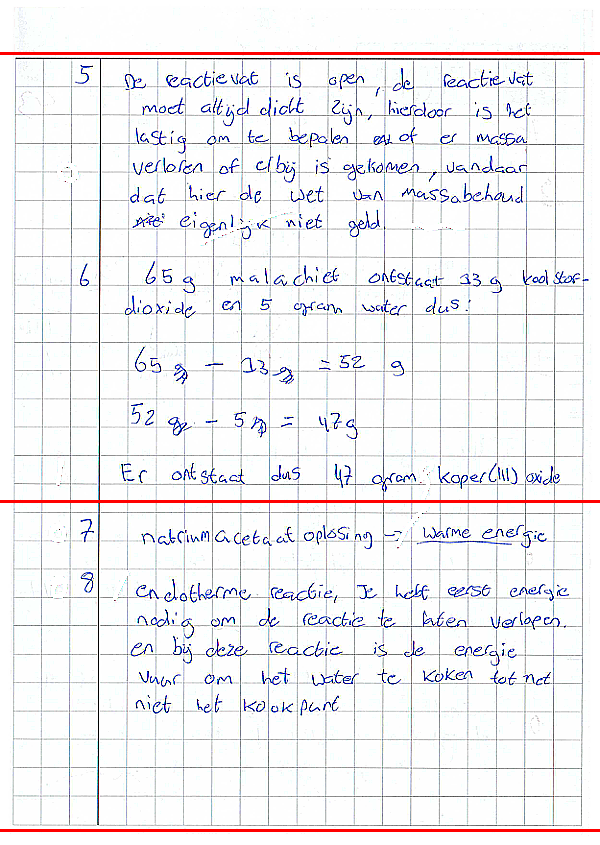 5 De reactievat is open, de reactievat
moet altijd dicht zijn, hierdoor is het
lastig om te bepalen of er massa
verloren of erbij is gekomen, vandaar
dat hier de wet van massabehoud
eigenlijk niet geld.
6 65 g malachiet ontstaat 13 g koolstof-
dioxide en 5 gram water dus:
65 g - 13 g = 52 g
52 g - 5 g = 47 g
Er ontstaat dus 47 gram koper(III) oxide
7 natriumacetaat oplosing → warme energie
8 endotherme reactie, Je hebt eerst energie
nodig om de reactie te laten verlopen.
en bij deze reactie is de energie
vuur om het water te koken tot net
niet het kookpunt